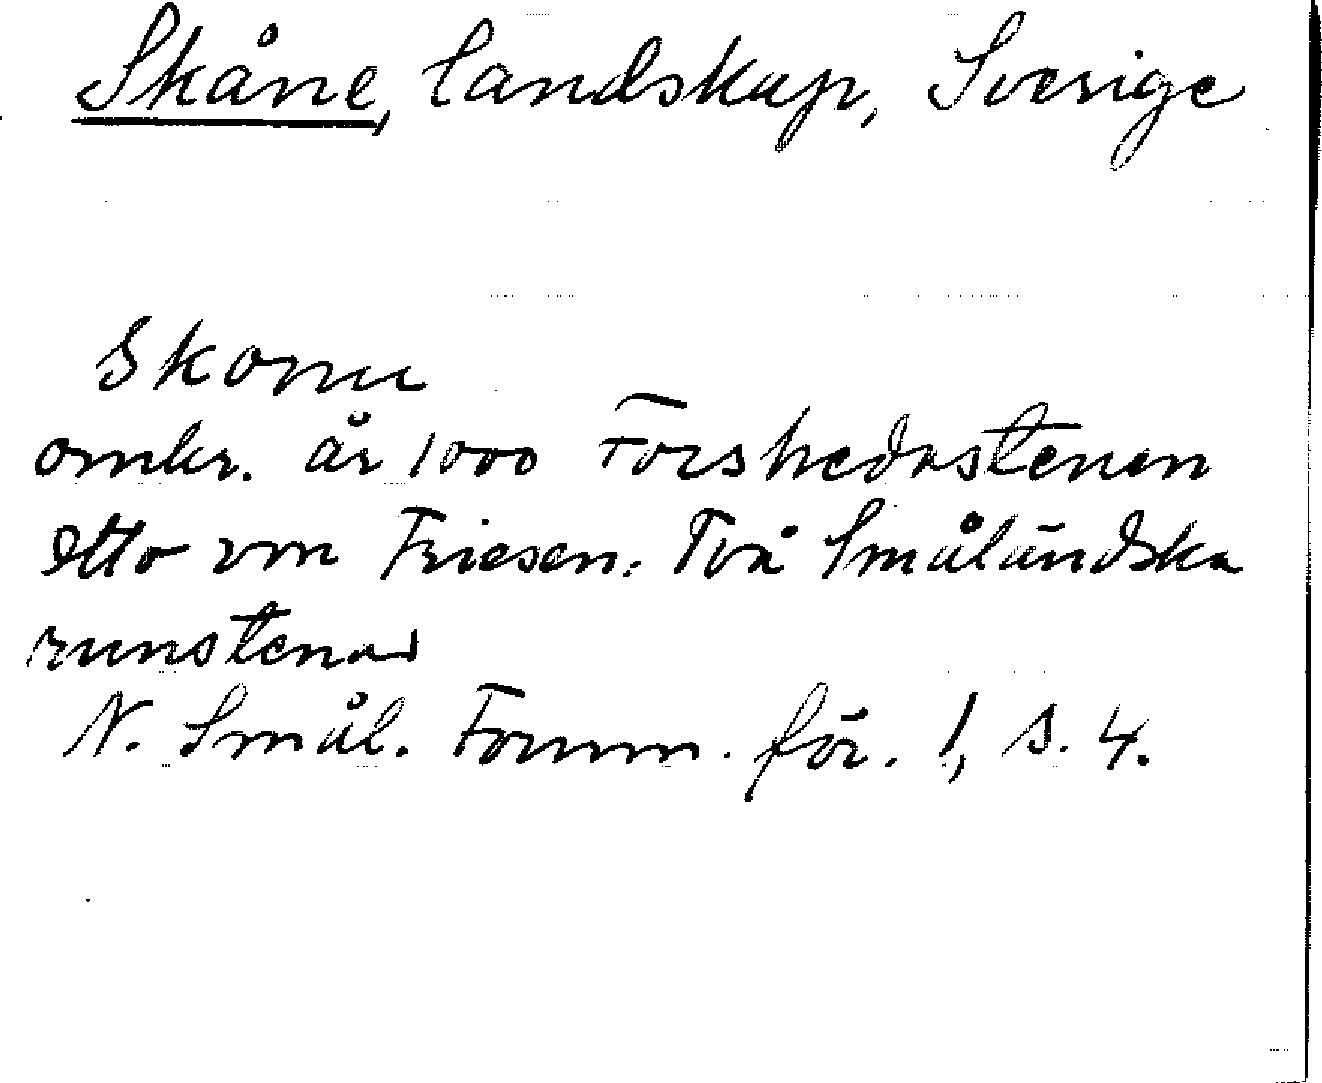 Skåne, landskap, Sverige
Skonu
omkr. år 1000 Forshedastenen
Otto von Friesen. Två Småländska
runstenar
N. Smål. Fornm. för. 1, s. 4.